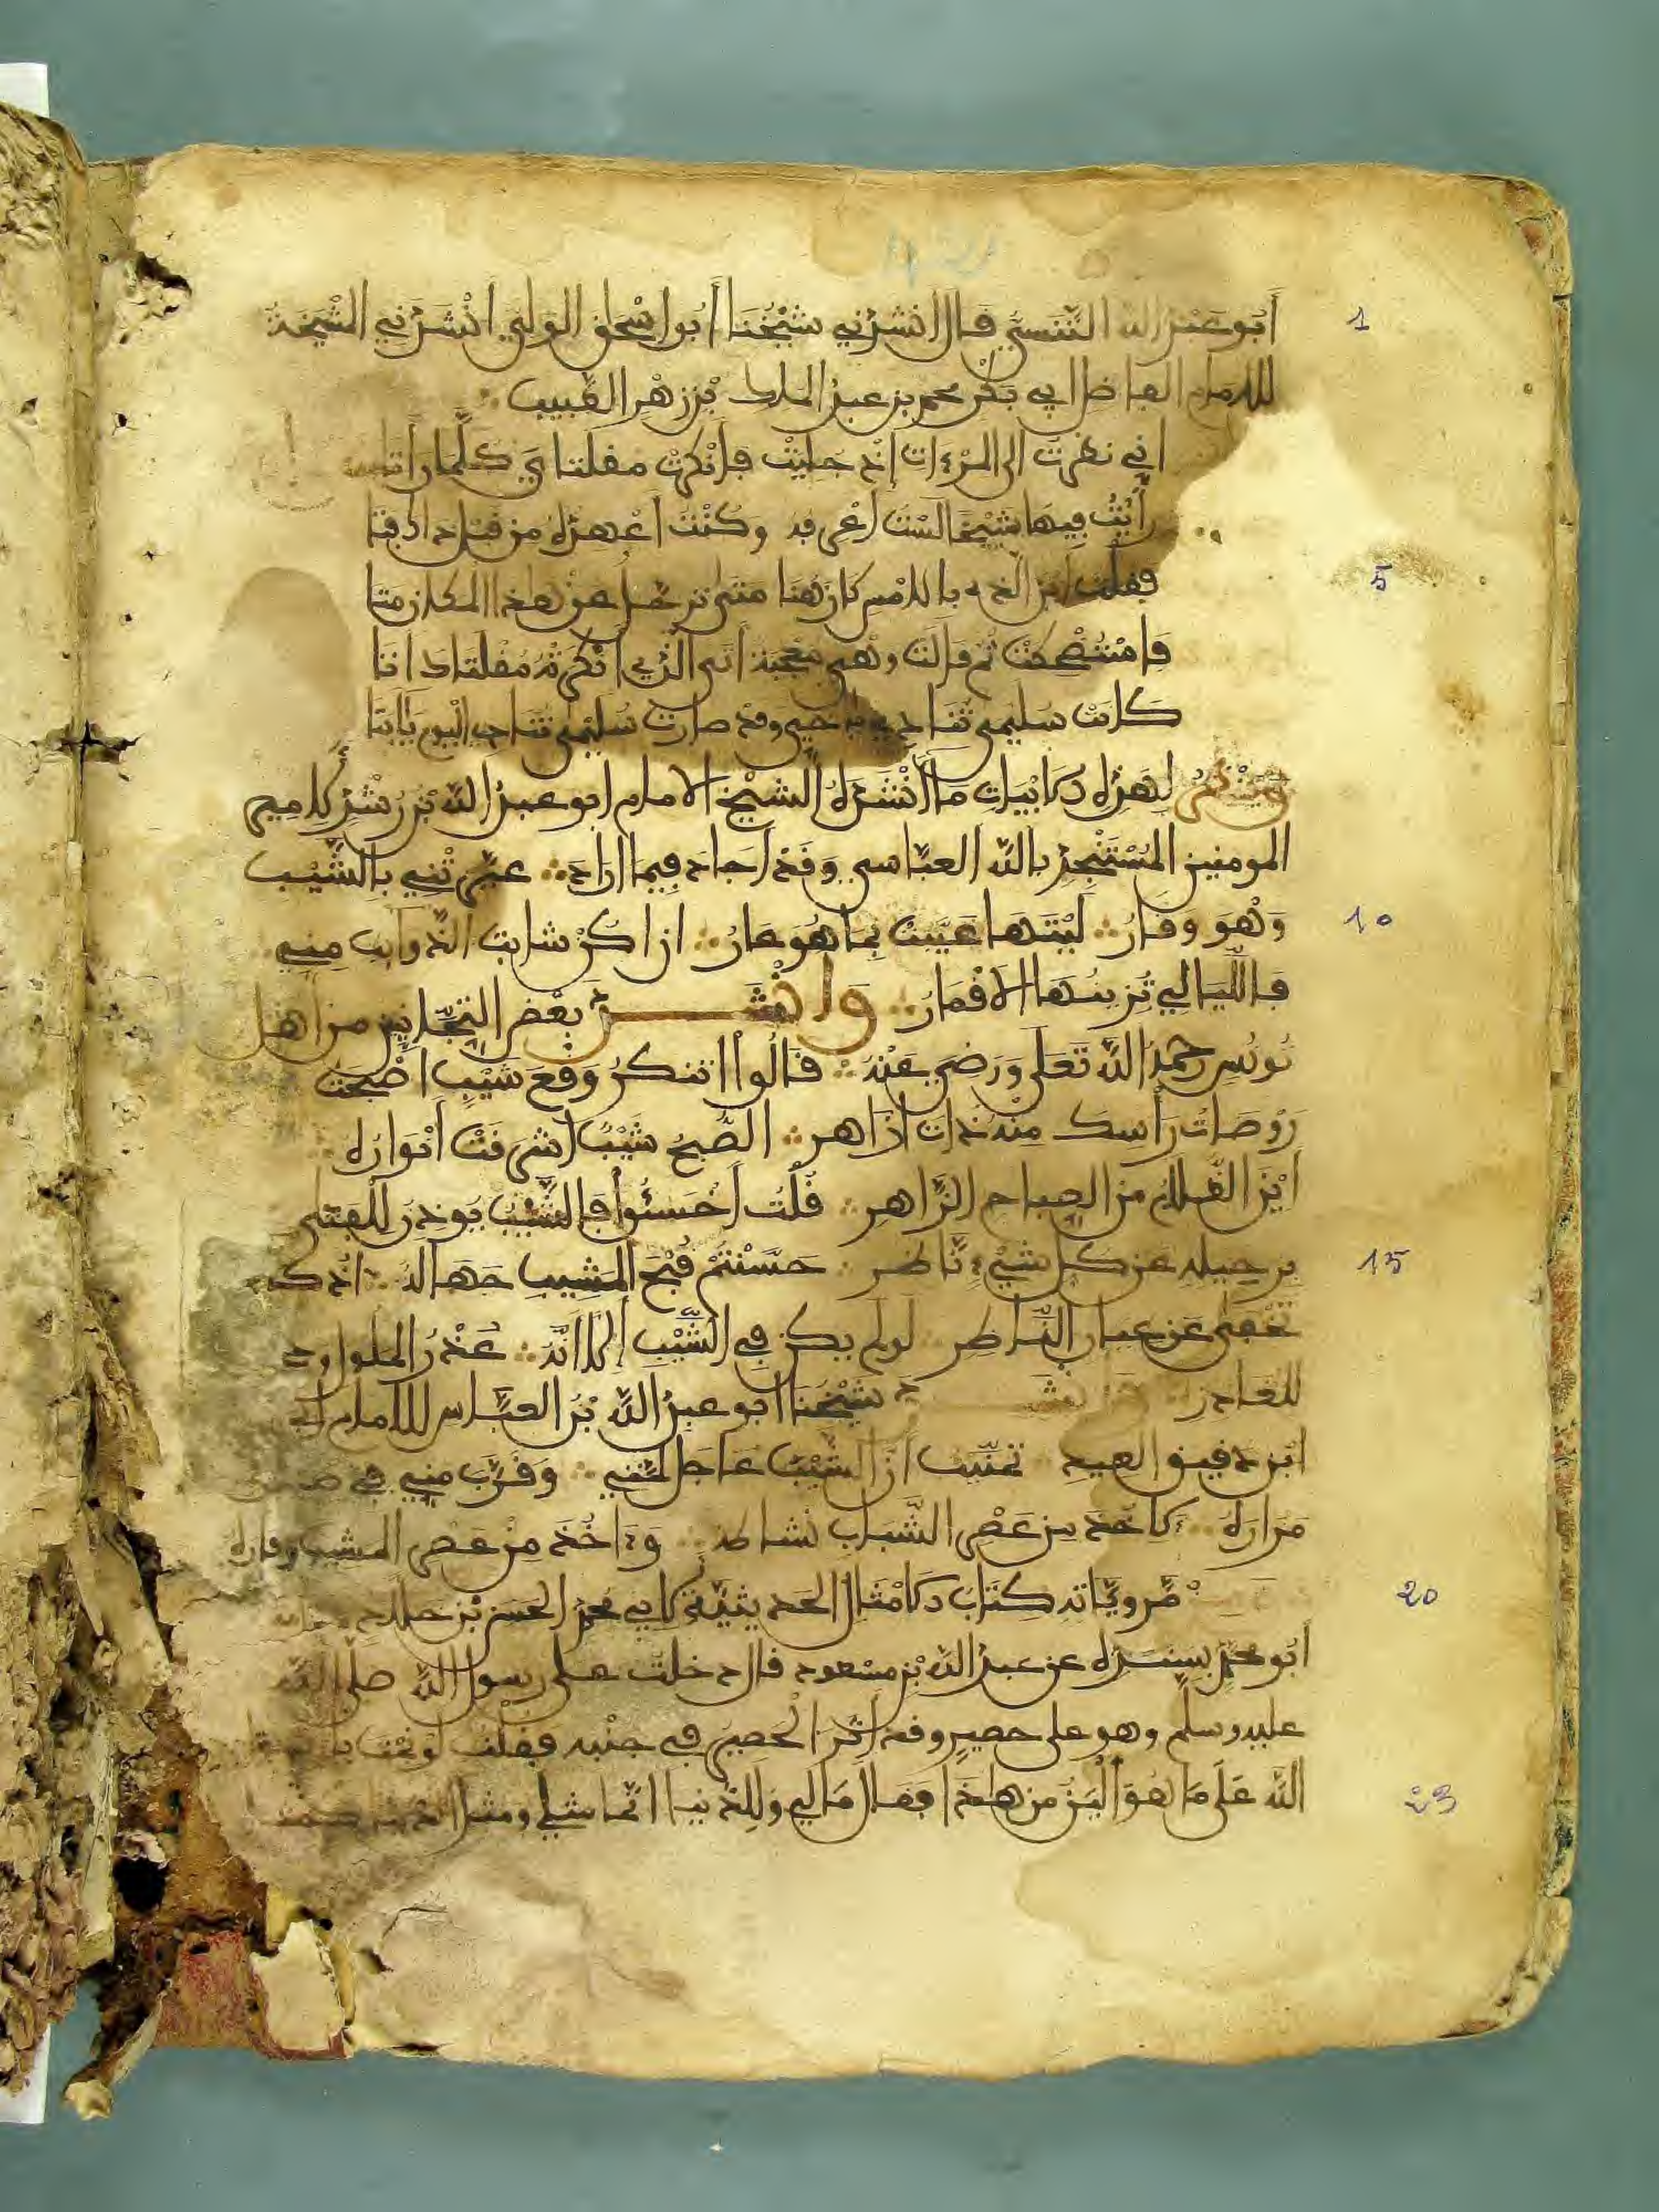 أبو عبد الله التنسي قال أنشدني شيخنا أبو إسحاق الولي أنشدني الشيخة
للامام الفاضل ابي بكر محمد بن عبد الملك بن زهر الطبيب
اني نظرت الى المرءات إذ جليت فأنكرت مقلتاي كلما رأتا
رأيت فيها شييخا لست أعرفه وكنت أعهده من قبل ذاك فتا
فقلت أين الذي بالامس كان هنا متى ترحل عن هذا المكان متا
فاستضحكت ثم قالت وهي معجبة اتى الذي أنكرته مقلتاك اتا
كانت سليمى تنادي يا أخي وقد صارت سليمى تنادي اليوم يا ابتا
لهذه الابيات ما أنشده الشيخ الامام ابو عبد الله بن رشد لامير
المومنين المستنجد بالله العباسي وقد أجاد فيما اراد عيرتني بالشيب
وهو وقار ليتها عيرت بما هو عار ان اكن شابت الذوايب مني
فالليالي تزينها الاقمار وأنشد بعض التجانيين من اهل
تونس رحمه الله تعلى ورضي عنه قالوا اتنكر وقع شيب اصبحت
روضات رأسك منه ذات ازاهر الصبح شيب أشرقت أنواره
أين الظلام من الصباح الزاهر قلت أخسئوا فالشيب يوذن للفتى
برحيله عن كل شيء ناظر حسنتم قبح المشيب جهالة اذ ك
تخفى عن عيان الناظر لو لم يكن في الشيب إلا انه عذر الملول وحجة
للغادر وأنشد شيخنا ابو عبد الله بن العباس للامام
ابن دقيق العيد تمنيت أن الشيب عاجل لمتي وقرب مني في
مزاره لآخذ من عصر الشباب نشاطه وءاخذ من عصر المشيب وقاره
مروياته كتاب الامثال الحديثية لابي محمد الحسن بن خلاد
أبو محمد بسنده عن عبد الله بن مسعود قال دخلت على رسول الله صلى الله
عليه وسلم وهو على حصير وقد أثر الحصير في جنبه فقلت لو نمت يا
الله على ما هو ألين من هاذا فقال ما لي وللدنيا انما مثلي ومثل الدنيا
1
5
10
15
20
23